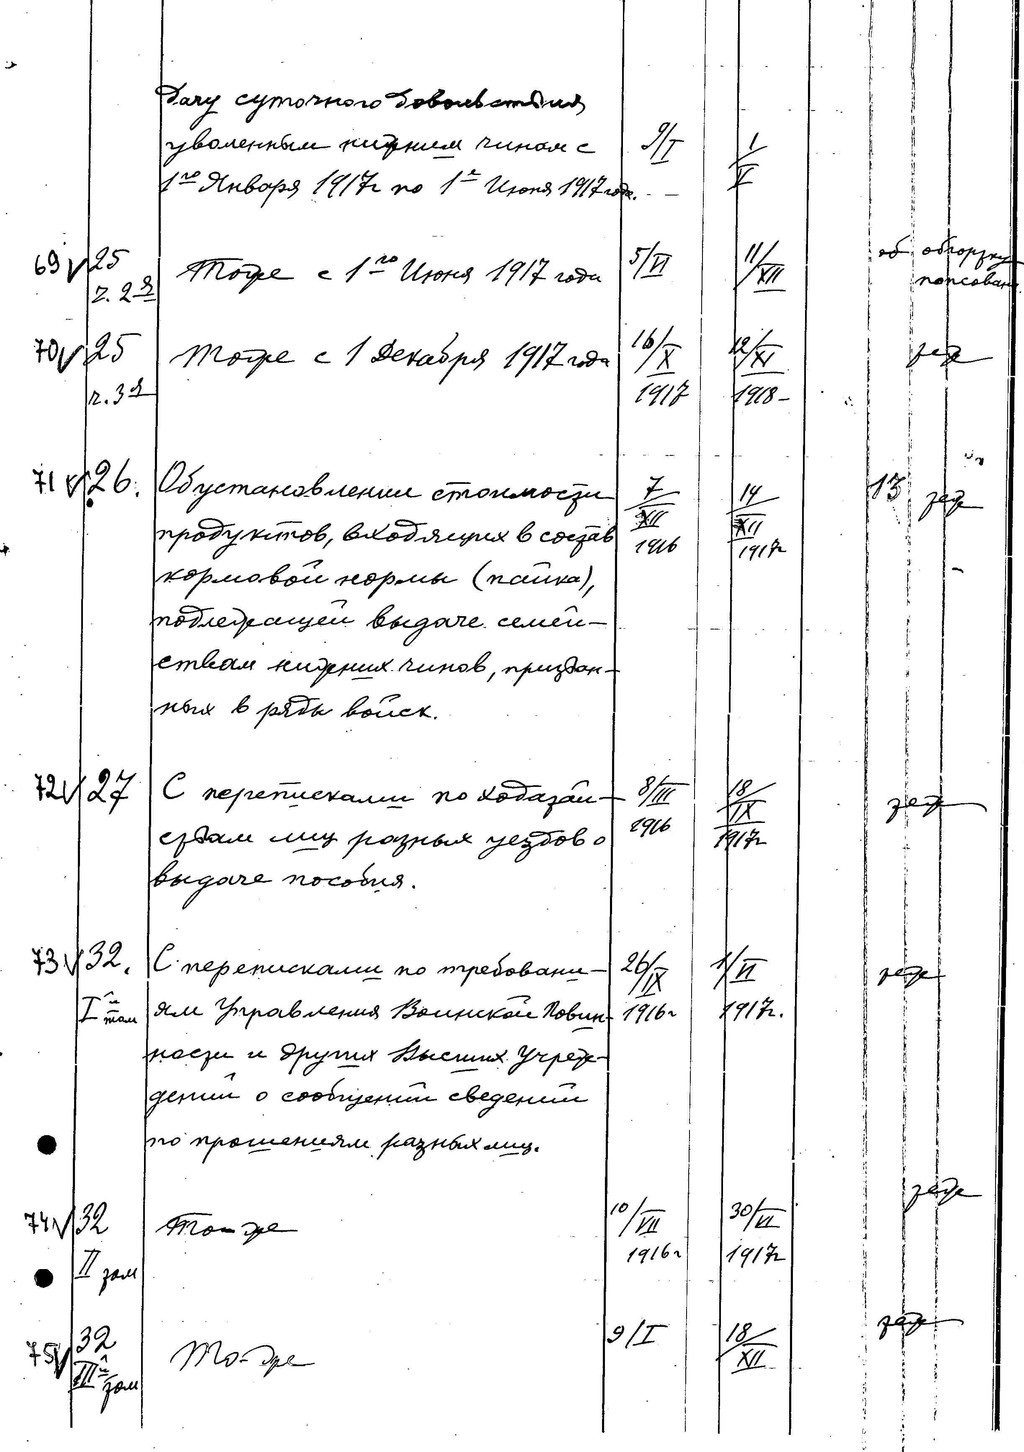 дачу суточного довольствия
уволенным нижним чинам с 9/I 1/V
1го Января 1917г по 1е Июня 1917 года.
69 25 Тоже с 1го Июня 1917 года 5/VI 11/XII
ч. 2я
70 25 Тоже с 1 Декабря 1917 года 16/X 12/XI
ч. 3я 1917 1918
71 26. Об установлении стоимости 7/XII 14/XII 13
продуктов, входящих в состав 1916 1917г
кормовой нормы (пайка),
подлежащей выдаче семей-
ствам нижних чинов, призван-
ных в ряды войск.
72 27 С переписками по ходатай- 8/III 18/IX
ствам лиц разных уездов о 1916 1917г
выдаче пособия.
73 32. С переписками по требовани- 26/IX 1/VI
Iй том ям Управления Воинской Повин- 1916г 1917г.
ности и других Высших Учреж-
дений о сообщений сведений
по прошениям разных лиц.
74 32 То-же 10/VII 30/VI
II том 1916г 1917г
75 32 То-же 9/I 18/XII
IIIй том